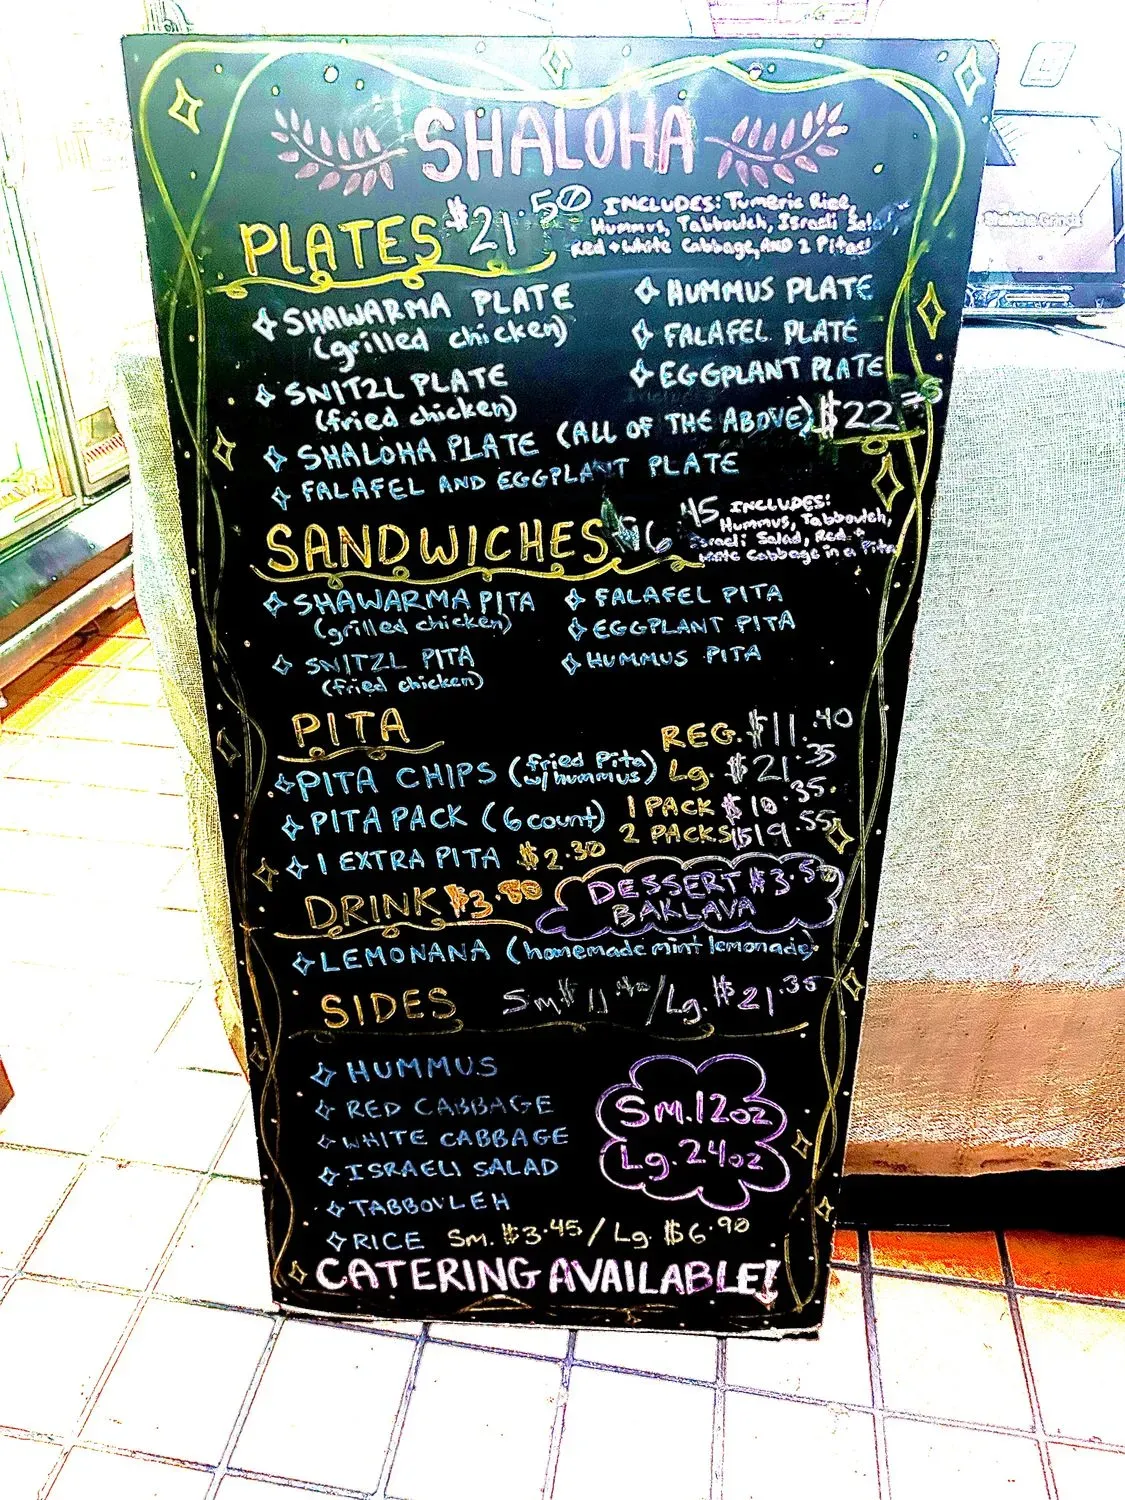 SHALOHA
PLATES $21.50
INCLUDES: Tumeric Rice,
Hummus, Tabbouleh, Israeli
Red + White Cabbage, AND 2 Pitas!
SHAWARMA PLATE
(grilled chicken)
SNITZL PLATE
(fried chicken)
HUMMUS PLATE
FALAFEL PLATE
EGGPLANT PLATE
SHALOHA PLATE (ALL OF THE ABOVE) $22
FALAFEL AND EGGPLANT PLATE
SANDWICHES 45
INCLUDES:
Hummus, Tabbouleh,
Israeli Salad, Red +
White Cabbage in a Pita
SHAWARMA PITA
(grilled chicken)
SNITZL PITA
(fried chicken)
FALAFEL PITA
EGGPLANT PITA
HUMMUS PITA
PITA
REG. $11.40
PITA CHIPS (fried Pita w/hummus) Lg. $21.35
PITA PACK (6 count) 1 PACK $10.35
2 PACKS $19.55
1 EXTRA PITA $2.30
DRINK
DESSERT $3.50
BAKLAVA
LEMONANA (homemade mint lemonade)
SIDES Sm $11.40 / Lg. $21.35
HUMMUS
RED CABBAGE
WHITE CABBAGE
ISRAELI SALAD
TABBOULEH
RICE Sm. $3.45 / Lg. $6.90
Sm. 12oz
Lg. 24oz
CATERING AVAILABLE!